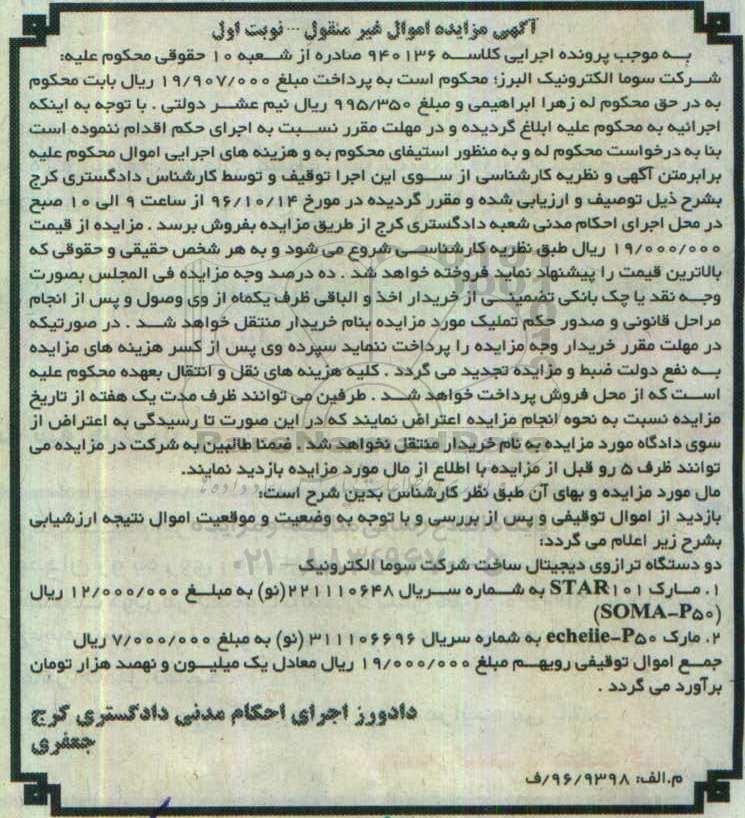 آگهی مزایده اموال غیر منقول --- نوبت اول
به موجب پرونده اجرایی کلاسه ۹۴۰۱۳۶ صادره از شعبه ۱۰ حقوقی محکوم علیه:
شرکت سوما الکترونیک البرز؛ محکوم است به پرداخت مبلغ ۱۹/۹۰۷/۰۰۰ ریال بابت محکوم
به در حق محکوم له زهرا ابراهیمی و مبلغ ۹۹۵/۳۵۰ ریال نیم عشر دولتی . با توجه به اینکه
اجرائیه به محکوم علیه ابلاغ گردیده و در مهلت مقرر نسبت به اجرای حکم اقدام ننموده است
بنا به درخواست محکوم له و به منظور استیفای محکوم به و هزینه های اجرایی اموال محکوم علیه
برابرمتن آگهی و نظریه کارشناسی از سوی این اجرا توقیف و توسط کارشناس دادگستری کرج
بشرح ذیل توصیف و ارزیابی شده و مقرر گردیده در مورخ ۹۶/۱۰/۱۴ از ساعت ۹ الی ۱۰ صبح
در محل اجرای احکام مدنی شعبه دادگستری کرج از طریق مزایده بفروش برسد . مزایده از قیمت
۱۹/۰۰۰/۰۰۰ ریال طبق نظریه کارشناسی شروع می شود و به هر شخص حقیقی و حقوقی که
بالاترین قیمت را پیشنهاد نماید فروخته خواهد شد . ده درصد وجه مزایده فی المجلس بصورت
وجه نقد یا چک بانکی تضمینی از خریدار اخذ و الباقی ظرف یکماه از وی وصول و پس از انجام
مراحل قانونی و صدور حکم تملیک مورد مزایده بنام خریدار منتقل خواهد شد . در صورتیکه
در مهلت مقرر خریدار وجه مزایده را پرداخت ننماید سپرده وی پس از کسر هزینه های مزایده
به نفع دولت ضبط و مزایده تجدید می گردد . کلیه هزینه های نقل و انتقال بعهده محکوم علیه
است که از محل فروش پرداخت خواهد شد . طرفین می توانند ظرف مدت یک هفته از تاریخ
مزایده نسبت به نحوه انجام مزایده اعتراض نمایند که در این صورت تا رسیدگی به اعتراض از
سوی دادگاه مورد مزایده به نام خریدار منتقل نخواهد شد . ضمنا طالبین به شرکت در مزایده می
توانند ظرف ۵ رو قبل از مزایده با اطلاع از مال مورد مزایده بازدید نمایند.
مال مورد مزایده و بهای آن طبق نظر کارشناس بدین شرح است:
بازدید از اموال توقیفی و پس از بررسی و با توجه به وضعیت و موقعیت اموال نتیجه ارزشیابی
بشرح زیر اعلام می گردد:
۰۲۱-۸۸۳۴۹۶۷۰-۵
دو دستگاه ترازوی دیجیتال ساخت شرکت سوما الکترونیک
۱. مارک STAR۱۰۱ به شماره سریال ۲۲۱۱۱۰۶۴۸(نو) به مبلغ ۱۲/۰۰۰/۰۰۰ ریال
(SOMA-P۵۰)
۲. مارک echeiie-P۵۰ به شماره سریال ۳۱۱۱۰۶۶۹۶ (نو) به مبلغ ۷/۰۰۰/۰۰۰ ریال
جمع اموال توقیفی رویهم مبلغ ۱۹/۰۰۰/۰۰۰ ریال معادل یک میلیون و نهصد هزار تومان
برآورد می گردد .
دادورز اجرای احکام مدنی دادگستری کرج
جعفری
م.الف: ۹۶/۹۳۹۸/ف